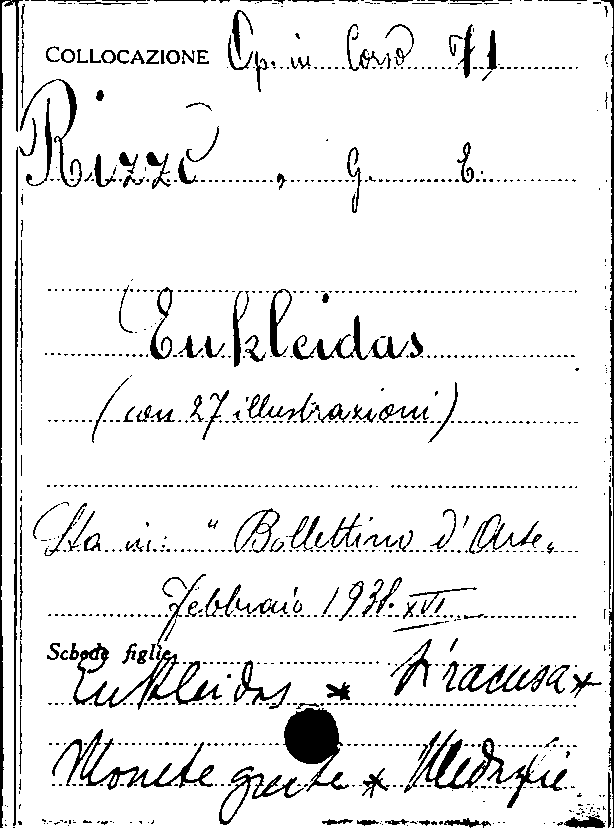 COLLOCAZIONE Op. in Corso 71
Rizzo, G. E.
Eukleidas
(con 27 illustrazioni)
Sta in: "Bollettino d'Arte„
Febbraio 1938. XVI
Schede figlie
Eukleidas * Siracusa *
Monete greche * Medaglie